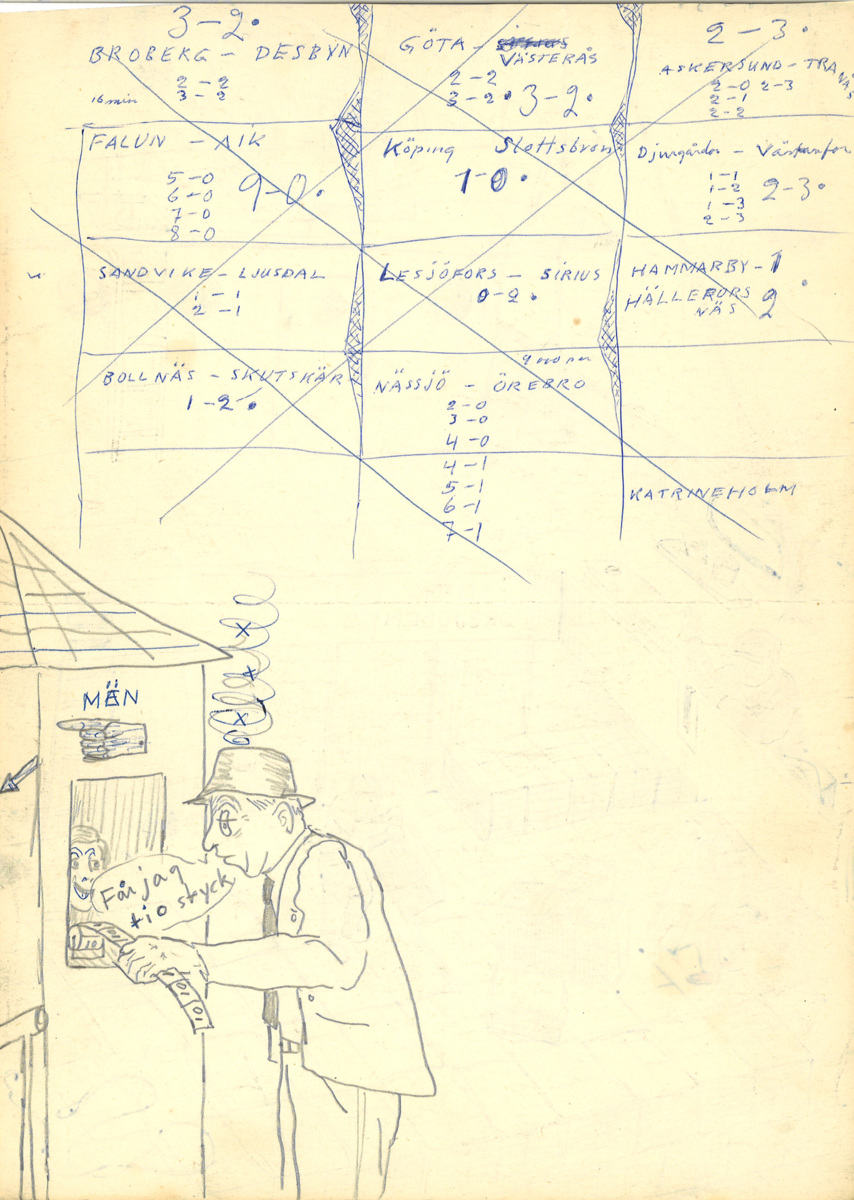 3-2.
BROBERG - DESBYN
2-2
16 min 3-2
GÖTA -
VÄSTERÅS
2-2
3-2. 3-2.
2-3.
ASKERSUND - TRANÅS
2-0 2-3
2-1
2-2
FALUN - AIK
5-0
6-0
7-0
8-0
9-0.
Köping Slottsbron
1-0.
Djurgården - Västanfor
1-1
1-2
1-3
2-3
2-3.
SANDVIKE - LJUSDAL
1-1
2-1
LESJÖFORS - SIRIUS
0-2.
HAMMARBY - 1
HÄLLEFORS
NÄS 2
BOLLNÄS - SKUTSKÄR
1-2.
NÄSSJÖ - ÖREBRO
2-0
3-0
4-0
4-1
5-1
6-1
7-1
KATRINEHOLM
MÄN
Får jag
tio styck
10
10
10